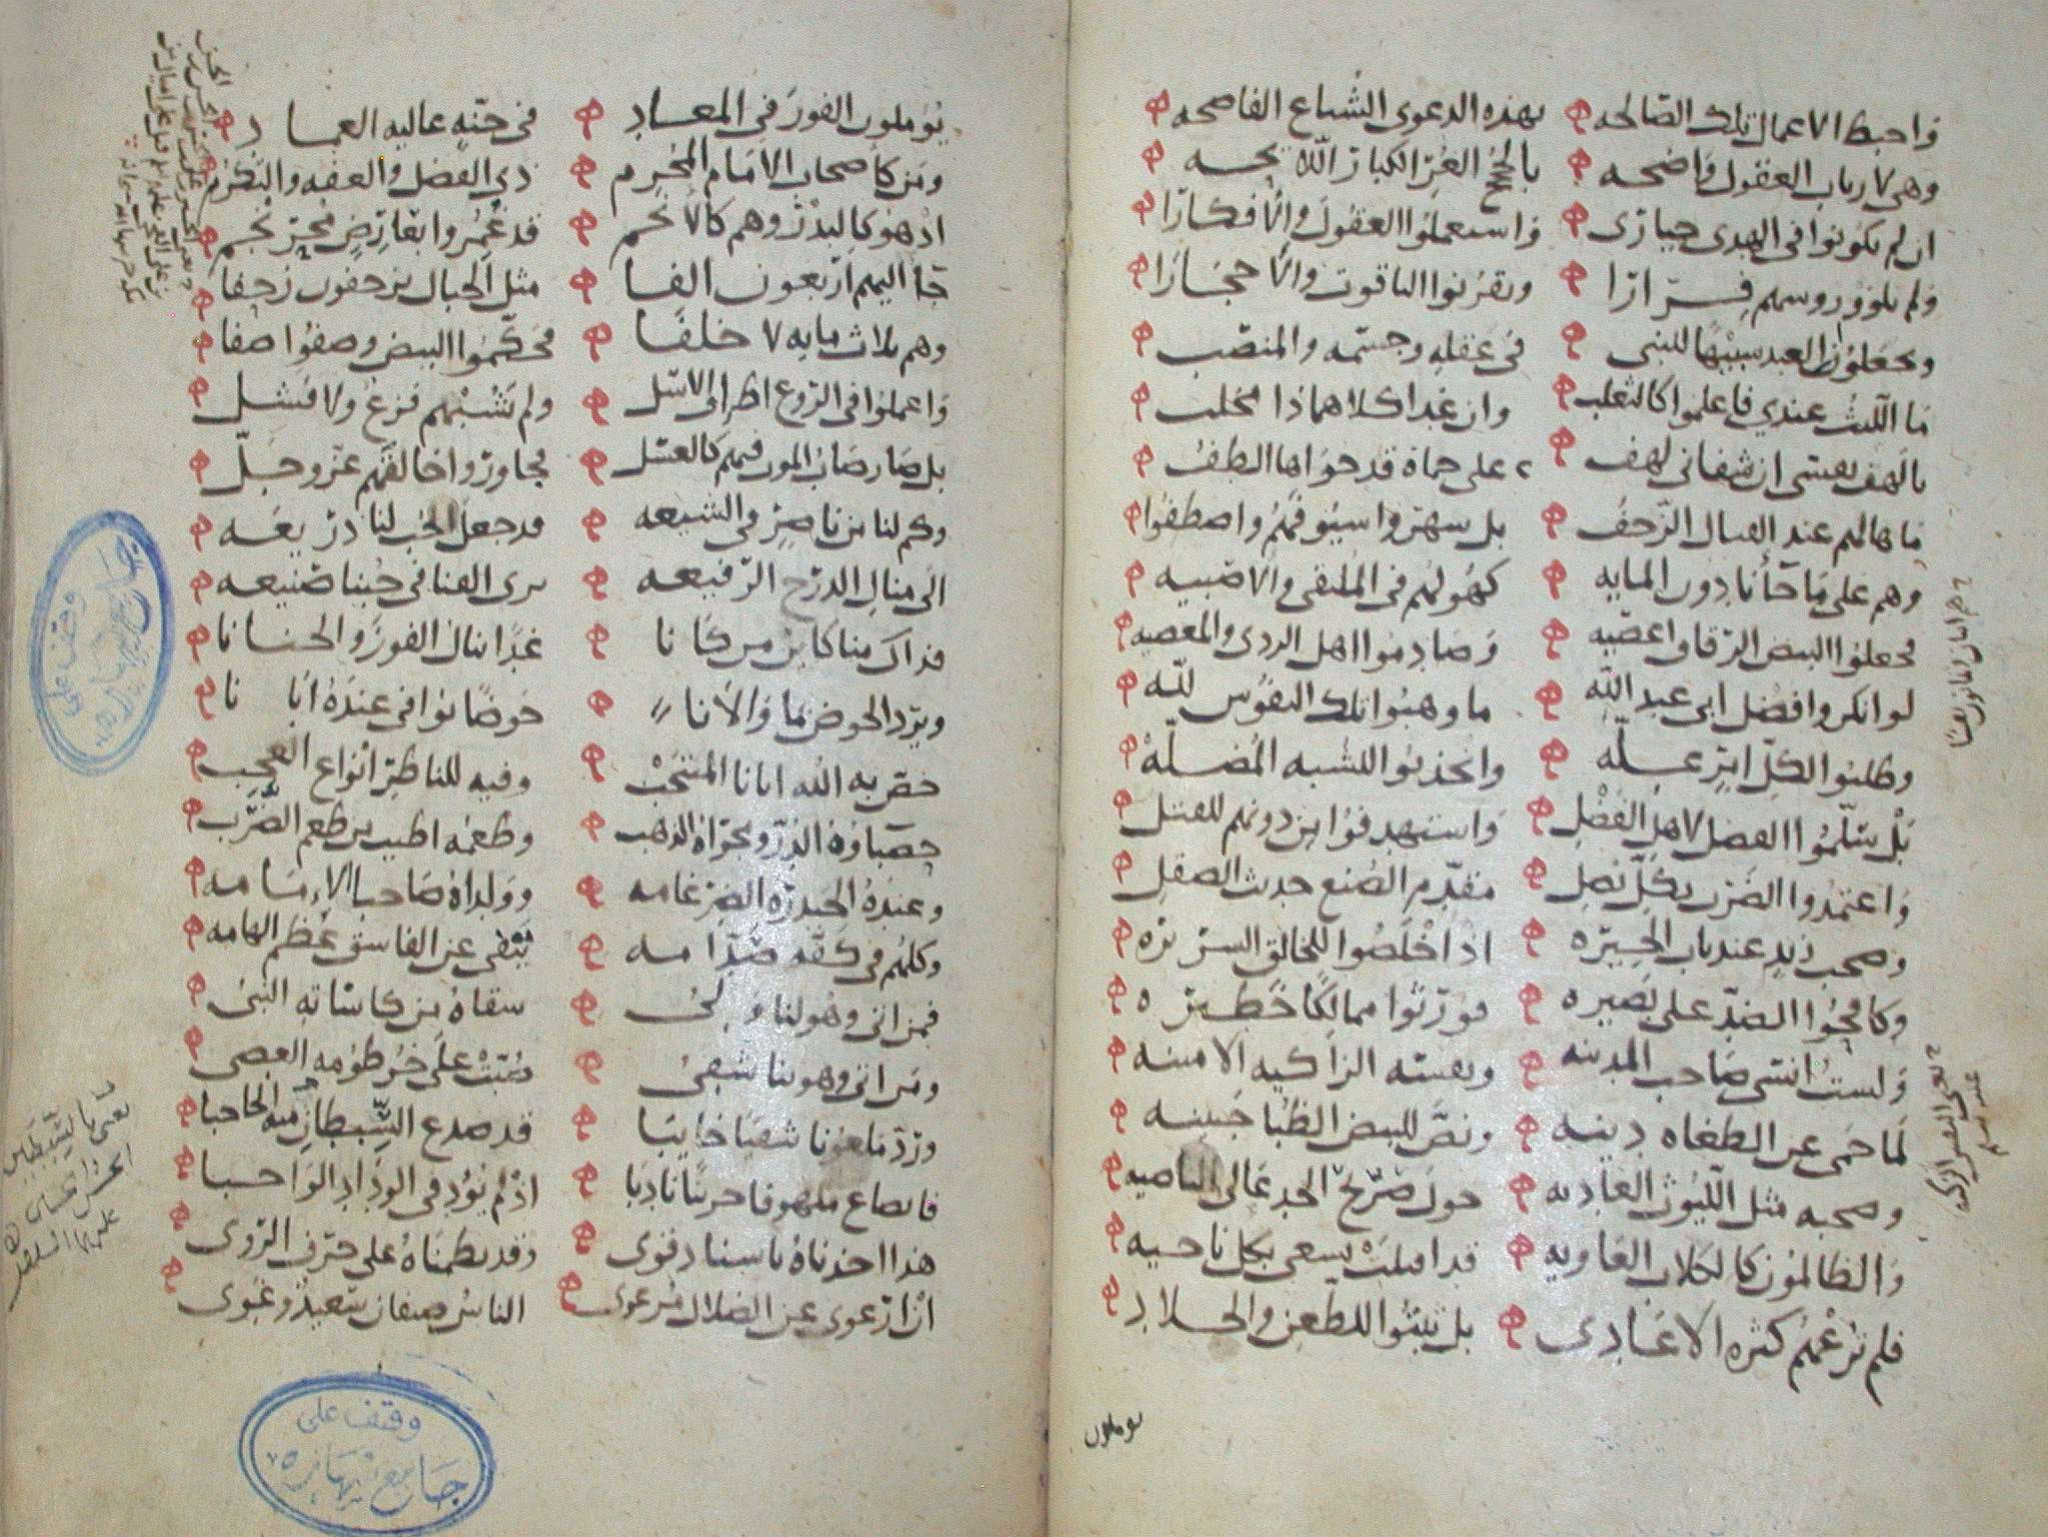 فاحبط الاعمال تلك الصالحه بهذه الدعوى الشناع الفاضحه
وهي لارباب العقول واضحه بالحجج الغر الكبار اللائحه
ان لم يكونوا في الهدى حيارى واستعملوا العقول والافكارا
ولم يلوو روسهم فرارا ويقرنوا الياقوت والاحجارا
ويجعلون العبد شبيها للنبي في عقله وجسمه والمنصب
ما الليث عندي فاعلموا كالثعلب وان غدا كلاهما ذا مخلب
يا لهف نفسي ان شفاني لهف على حماة قد حواها الطف
ما هالهم عند القتال الزحف بل شهروا سيوفهم واصطفوا
وهم على ما جأنا دون المايه كهولهم في الملتقى والاصبيه
فجعلوا البيض الرقاق اعصيه وصادموا اهل الردى والمعصيه
لو انكروا فضل ابي عبد الله ما وهبوا تلك النفوس لله
وطلبوا لكل امر عله واتخذوا للشبه المضله
بل سلموا الفضل لاهل الفضل واستهدفوا من دونهم للقتل
واعتمدوا الضرب بكل نصل متقدم الصنع حديث الصقل
وصحب زيد عند باب الحيره اذ اخلصوا للخالق السريره
وكافحوا الضد على بصيره فورثوا ممالكا خطيره
ولست انسى صاحب المدينه ونفسه الزاكيه الامينه
لما حمى عن الطغاه دينه ونص للبيض الظبا جبينه
وصحبه مثل الليوث العاديه حول صريح الجد عالي الناصيه
والظالمون كالكلاب العاويه قد اقبلت يسعى بكل ناحيه
فلم ترعهم كثره الاعادي بل ثبتوا للطعن والجلاد
يوملون
يوملون الفوز في المعاد في جنه عاليه العماد
ومن كاصحاب الامام المخرم ذي الفضل والعفه والتكرم
اذ هو كالبدر وهم كالانجم قد غمروا بعارض محرنجم
جا اليهم اربعون الفا مثل الجبال يزحفون زحفا
وهم ثلاث مايه لا خلفا فحكموا البيض وصفوا صفا
واعملوا في الروع اطراف الاسل ولم يشبهم فزع ولا فشل
بل صار صاب الموت فيهم كالعسل فجاوروا خالقهم عز وجل
وكم لنا من ناصر في الشيعه قد جعل الحب لنا ذريعه
الى منال الدرج الرفيعه يرى الفنا في حبنا صنيعه
فذاك منا كاين من كانا غدا ينال الفوز والجنانا
ويرد الحوض بما والانا حوضا نوافي عنده ابانا
خص به الله ابانا المنتجب وفيه للناظر انواع العجب
حصباوه الدر ومجراه الذهب وطعمه اطيب من طعم الضرب
وعنده الحيدره الضرغامه وولداه صاحبا الامامه
وكلهم في كفه صمصامه ينفي عن الفاسق عظم الهامه
فمن اتى وهو لنا ولي سقاه من كاساته النبي
ومن اتى وهو بنا شقي صبت على خرطومه العصي
ورد ملعونا شقيا خايبا قد صدع الشبطان منه الحاجبا
فانصاع ملهوفا حزينا نادبا اذ لم يؤد في الوداد الواجبا
هذا اخذناه باسناد قوي وقد نظمناه على حرف الروي
ان ارعوى عن الضلال مرعوي الناس صنفان سعيد وغوي
يعني بالشبطين
الحسن والحسين
عليهما السلام
وقف على
جامع نهاره